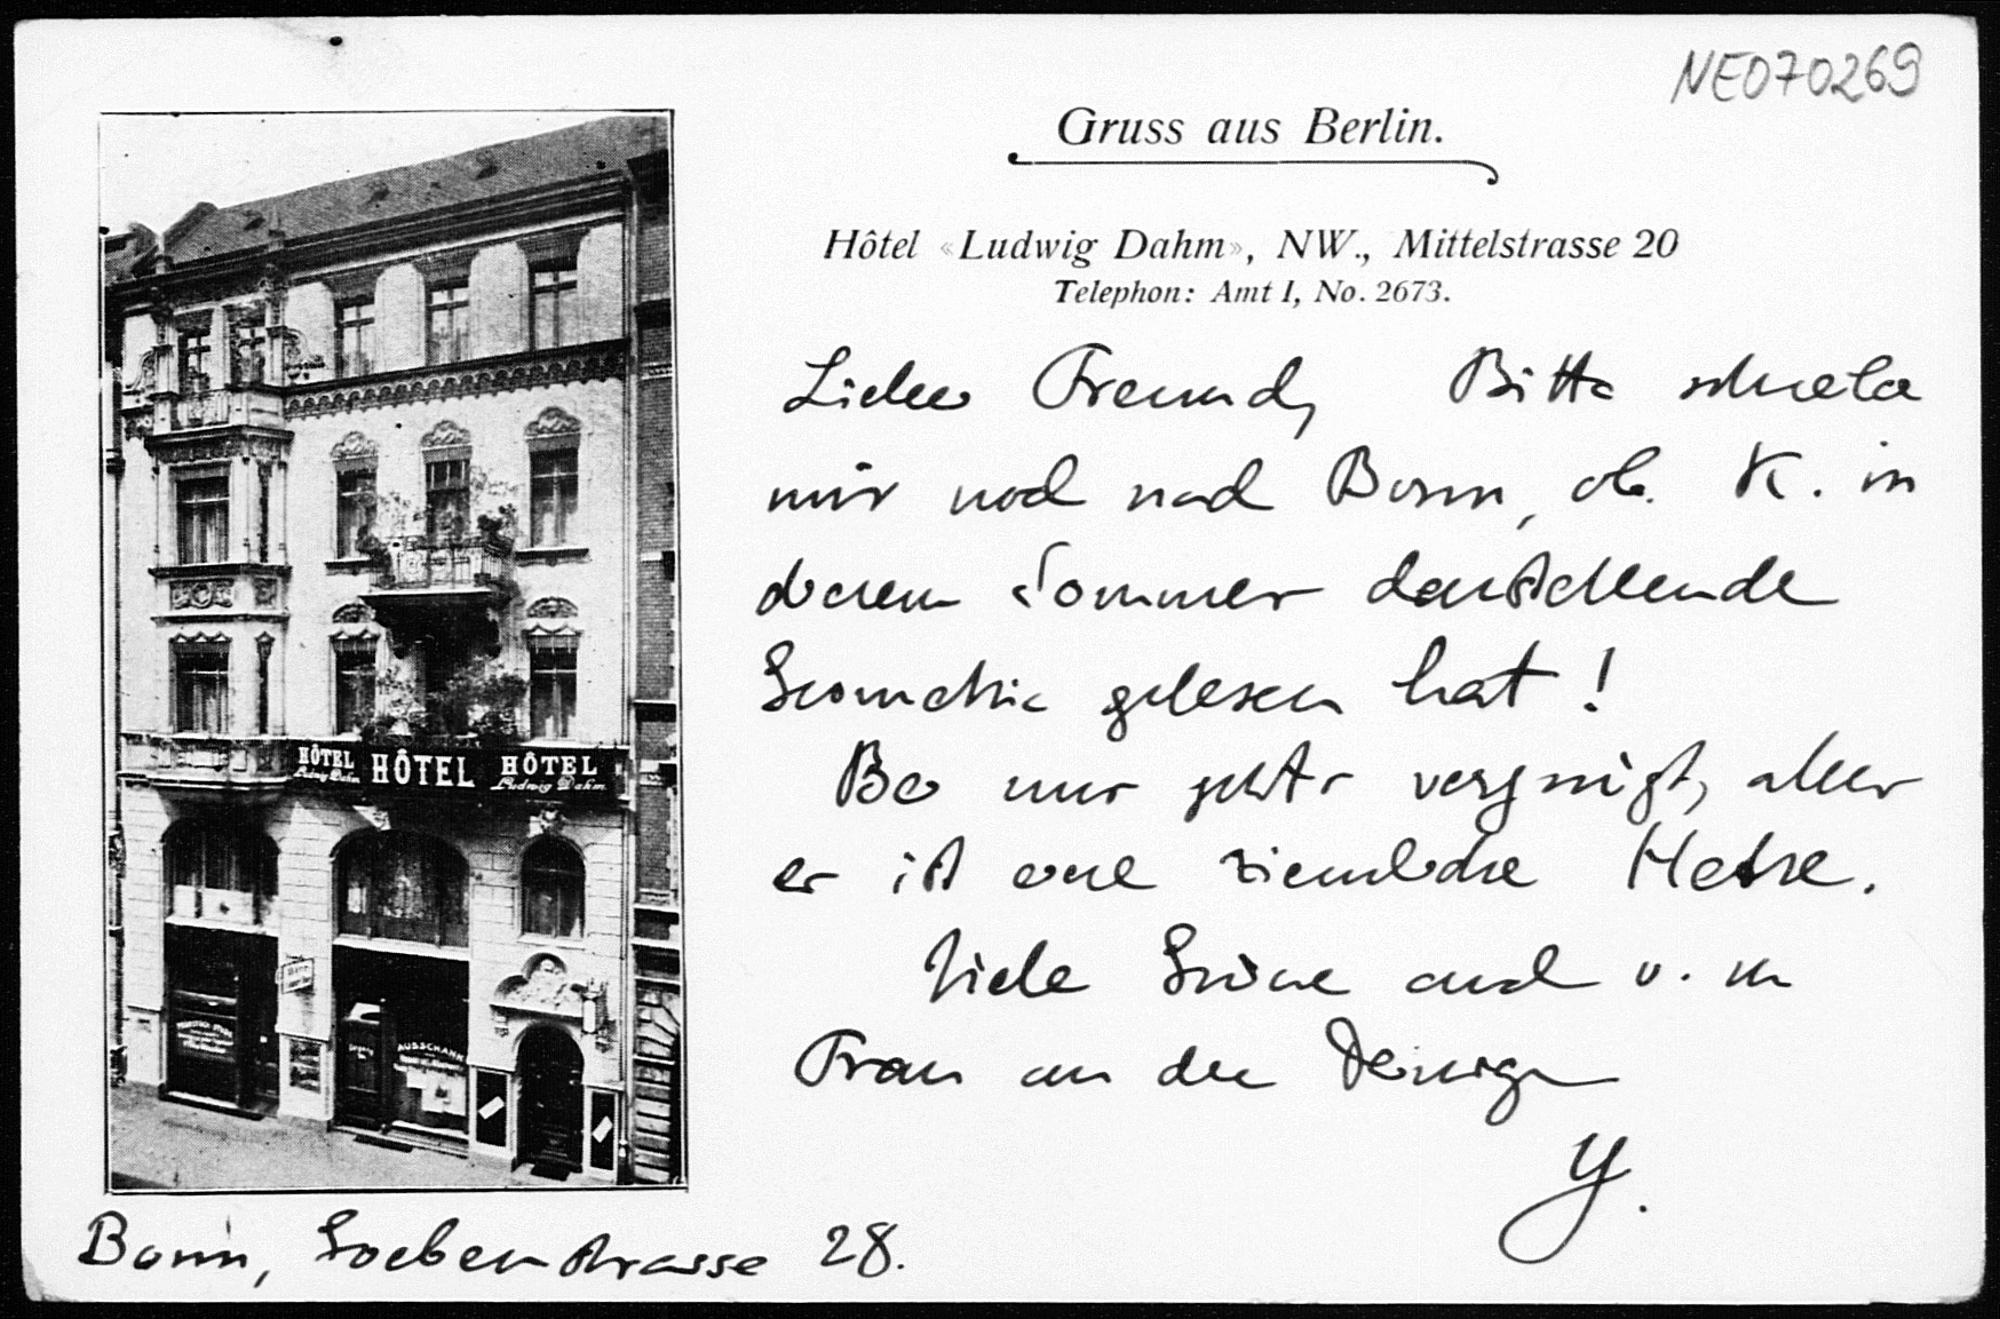 NE070269
Gruss aus Berlin.
Hôtel «Ludwig Dahm», NW., Mittelstrasse 20
Telephon: Amt I, No. 2673.
Lieber Freund, Bitte schreibe
mir noch nach Bonn, ob K. in
diesem Sommer darstellende
Geometrie gelesen hat!
Bei uns geht's vergnügt, aber
er ist eine ziemliche Hetze.
Viele Grüsse auch v. m
Frau an die Deinige
Y.
Bonn, Goebenstrasse 28.
HÔTEL
Ludwig Dahm
HÔTEL
HÔTEL
Ludwig Dahm
AUSSCHANK